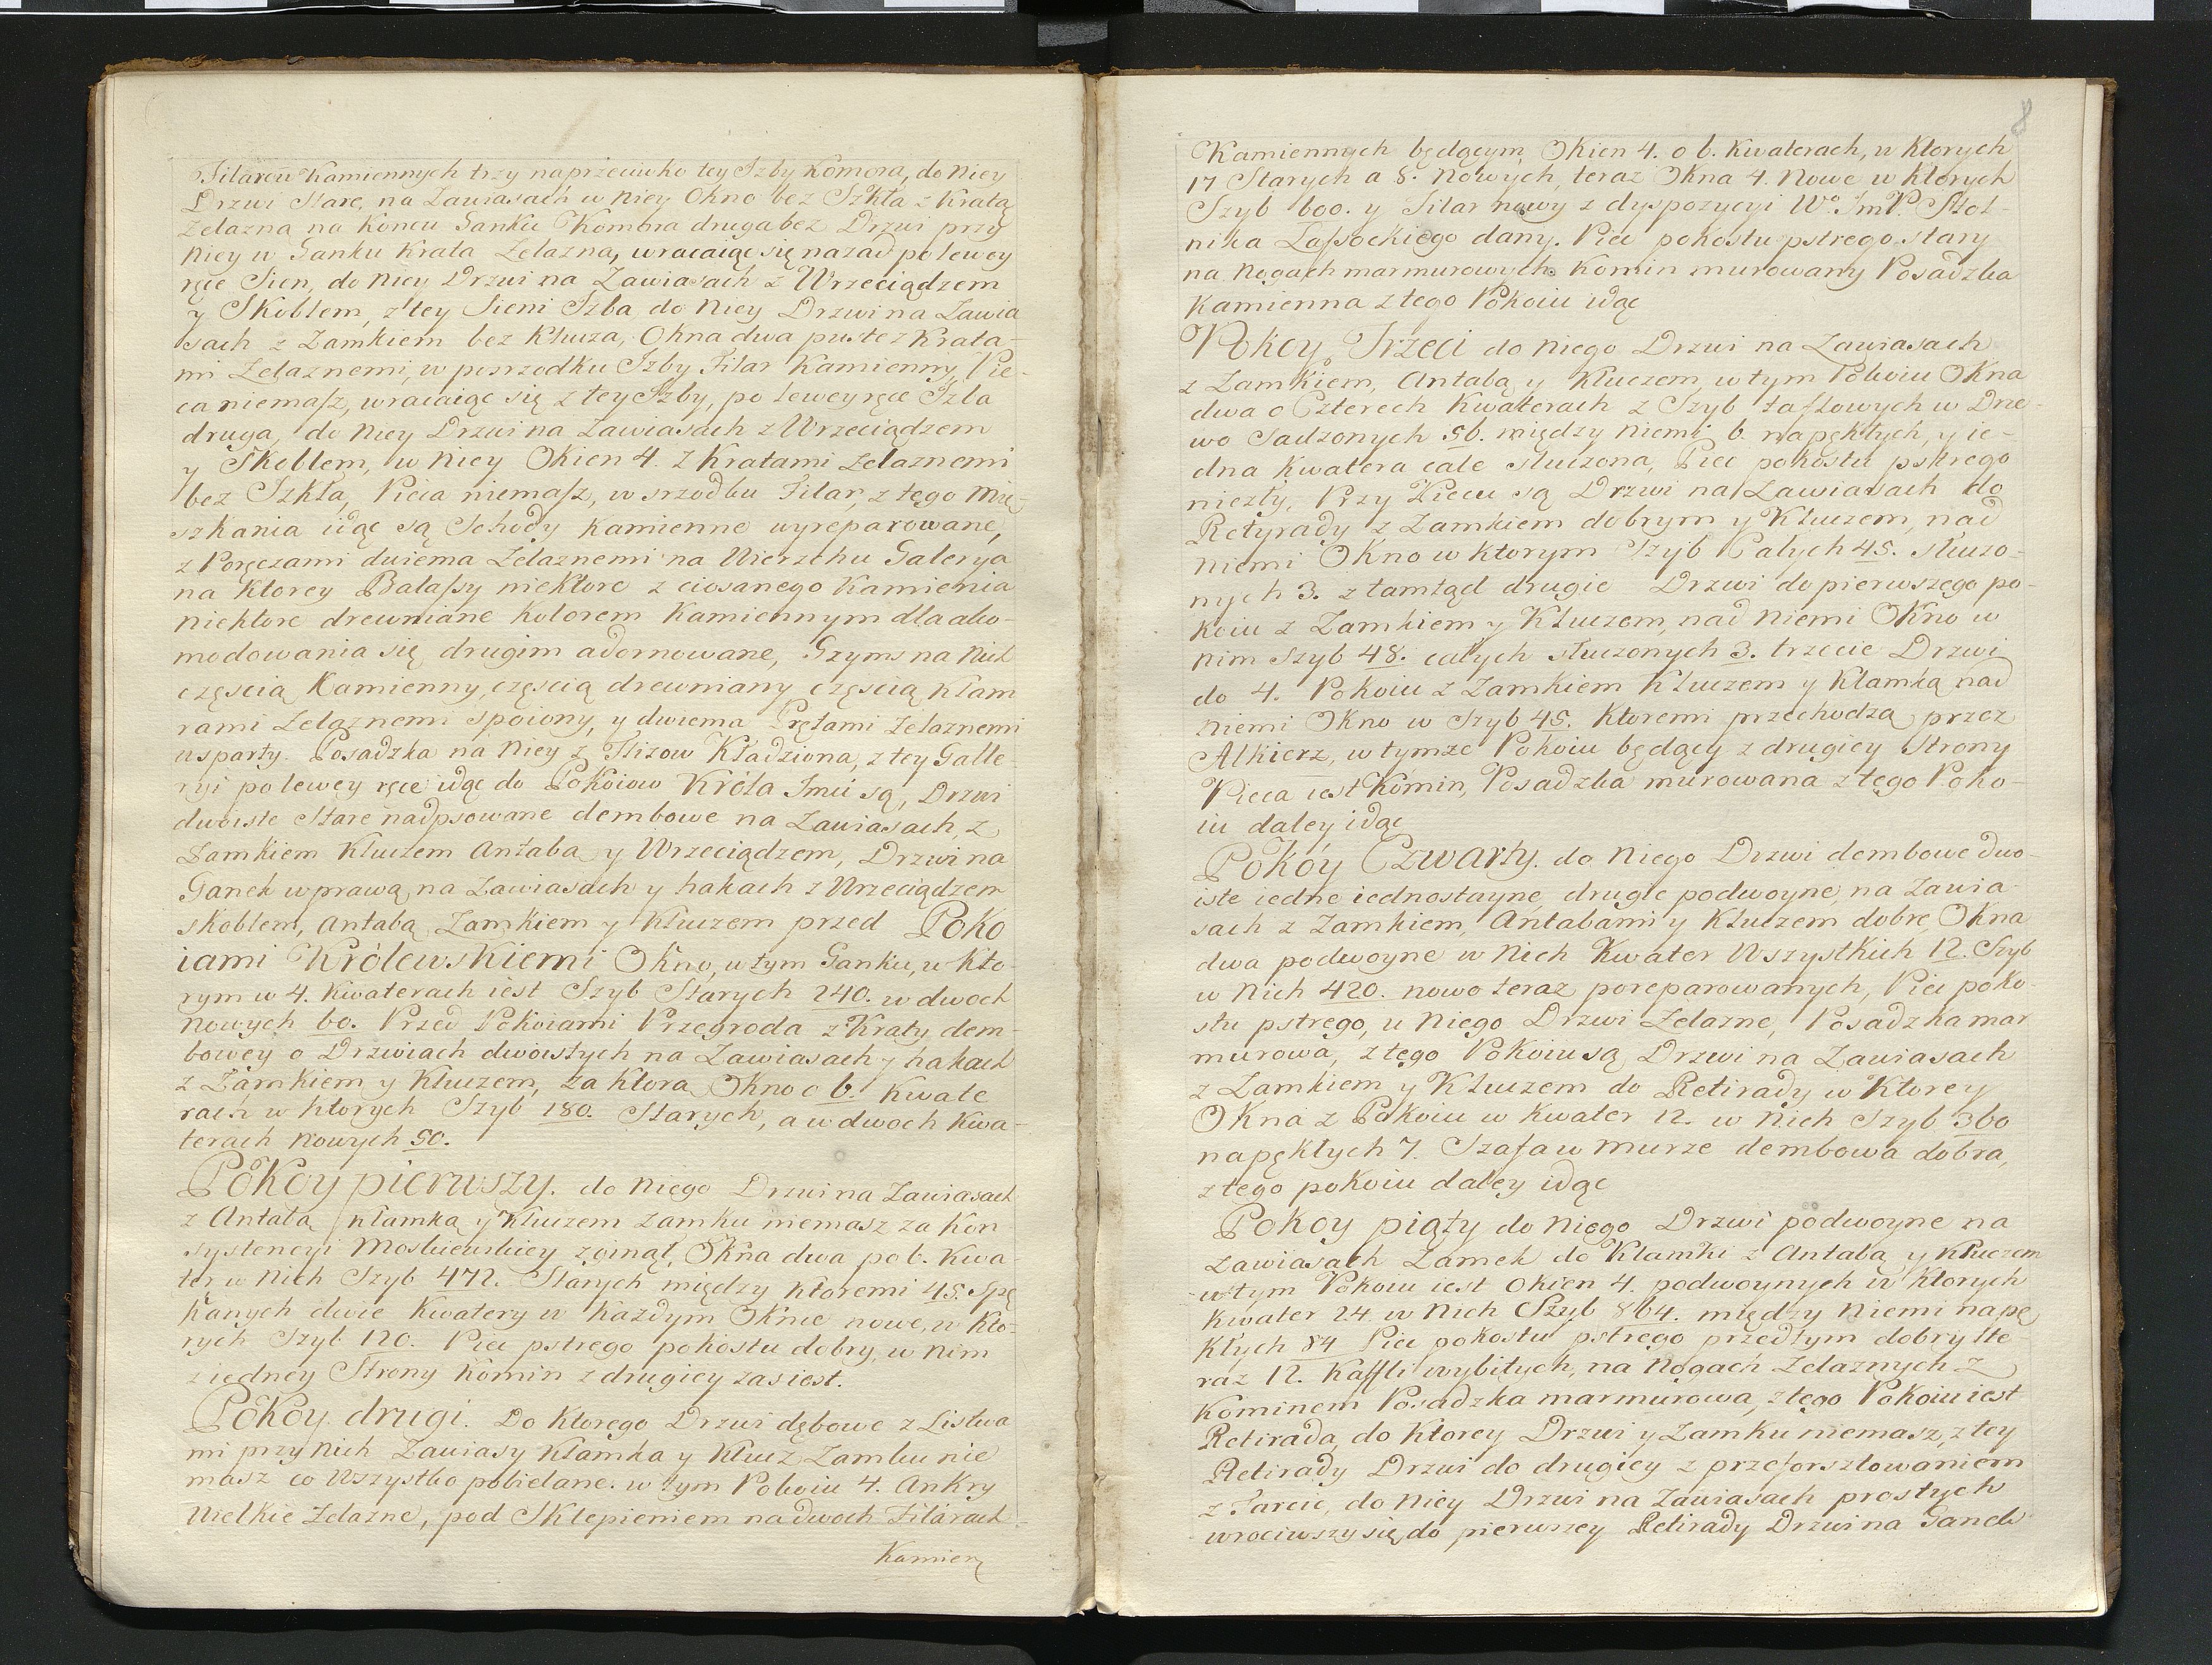 Filarow Kamiennych trzy naprzeciwko tey Izby Komora, do Niey
Drzwi Stare, na Zawiasach w Niey Okno bez Szkła z Kratą
Zelazną na Koncu Ganku Komora druga bez Drzwi przy
Niey w Ganku Krata Zelazna, wracaiąc się nazad po lewey
ręce Sien, do Niey Drzwi na Zawiasach z Wrzeciądzem
y Skoblem, z tey Sieni Izba do Niey Drzwi na Zawia
sach z Zamkiem bez Klucza, Okna dwa puste z Krata-
mi Zelaznemi, w posrzodku Izby Filar Kamienny, Pie-
ca niemasz, wracaiąc się z tey Izby, po lewey ręce Izba
druga, do Niey Drzwi na Zawiasach z Wrzeciądzem
y Skoblem, w Niey Okien 4. z Kratami Zelaznemi
bez Szkła, Pieca niemasz, w srzodku Filar, z tego Mie-
szkania idąc są Schody Kamienne wyreparowane,
z Poręczami dwiema Zelaznemi na Wierzchu Galerya
na Ktorey Balassy niektore z ciosanego Kamienia
niektore drewniane kolorem Kamiennym dla ako-
modowania się drugim adornowane, Gzyms na Nich
częscią Kamienny, częscią drewniany częscią Klam
rami Zelaznemi spoiony, y dwiema Prętami Zelaznemi
wsparty. Posadzka na Niey z Flizow Kładziona, z tey Galle-
ryi po lewey ręce idąc do Pokoiow Króla Jmci są, Drzwi
dwoiste Stare nadpsowane dembowe na Zawiasach, z
Zamkiem Kluczem Antabą y Wrzeciądzem, Drzwi na
Ganek w prawą na Zawiasach y hakach z Wrzeciądzem
skoblem, antabą Zamkiem y Kluczem przed Poko
iami Królewskiemi Okno, w tym Ganku, w Kto-
rym w 4. Kwaterach iest Szyb Starych 240. w dwoch
Nowych 60. Przed Pokoiami Przegroda z Kraty dem-
bowey o Drzwiach dwoistych na Zawiasach y hakach
z Zamkiem y Kluczem, za Ktorą Okno o 6. Kwate
rach w Ktorych Szyb 180. Starych, a w dwoch Kwa-
terach Nowych 50.
Pokoy pierwszy. do Niego Drzwi na Zawiasach
z Antabą Klamką y Kluczem Zamku niemasz za Kon
systencyi Moskiewskiey zginął, Okna dwa po 6. Kwa-
ter w Nich Szyb 472. Starych między Ktoremi 45. Spę
kanych dwie Kwatery w każdym Oknie nowe, w Kto-
rych Szyb 120. Piec pstrego pokostu dobry, w nim
z iedney Strony Komin z drugiey zas iest.
Pokoy drugi. Do Ktorego Drzwi dębowe z Listwa
mi przy Nich Zawiasy Klamka y Klucz Zamku nie
masz co Wszystko pobielane. w tym Pokoiu 4. Ankry
Wielkie Zelazne, pod Sklepieniem na dwoch Filarach
Kamien
8
Kamiennych będącym Okien 4. o 6. Kwaterach, w Ktorych
17 Starych a 8. Nowych, teraz Okna 4. Nowe w Ktorych
Szyb 600. y Filar nowy z dyspozycyi Wo. JmP. Stol-
nika Lassockiego dany. Piec pokostu pstrego stary
na Nogach marmurowych Komin murowany Posadzka
Kamienna z tego Pokoiu idąc
Pokoy Trzeci do Niego Drzwi na Zawiasach
z Zamkiem, Antabą y Kluczem, w tym Pokoiu Okna
dwa o Czterech Kwaterach z Szyb taflowych w Drze-
wo Sadzonych 56. między niemi 6. napękłych, y ie-
dna Kwatera cale stłuczona, Piec pokostu pstrego
niezły, Przy Piecu są Drzwi na Zawiasach do
Retyrady z Zamkiem dobrym y Kluczem, nad
niemi Okno w ktorym Szyb Całych 45. stłuczo-
nych 3. z tamtąd drugie Drzwi do pierwszego po-
koiu z Zamkiem y Kluczem, nad Niemi Okno w
nim Szyb 48. całych stłuczonych 3. trzecie Drzwi
do 4. Pokoiu z Zamkiem Kluczem y Klamką nad
niemi Okno w Szyb 45. Ktoremi przechodzą przez
Alkierz, w tymże Pokoiu będący z drugiey Strony
Pieca iest Komin, Posadzka murowana z tego Poko-
iu daley idąc
Pokoy Czwarty. do Niego Drzwi dembowe dwo-
iste iedne iednostayne, drugie podwoyne, na Zawia-
sach z Zamkiem, Antabami y Kluczem dobre, Okna
dwa podwoyne w Nich Kwater Wszystkich 12. Szyb
w Nich 420. nowo teraz poreparowanych, Piec poko-
stu pstrego, u Niego Drzwi Zelazne, Posadzka mar
murowa, z tego Pokoiu są Drzwi na Zawiasach
z Zamkiem y Kluczem do Retirady w Ktorey
Okna z Pokoiu w Kwater 12. w Nich Szyb 360
napękłych 7. Szafa w Murze dembowa dobra,
z tego pokoiu daley idąc
Pokoy piąty do Niego Drzwi podwoyne na
Zawiasach Zamek do Klamki z Antabą y Kluczem
w tym Pokoiu iest Okien 4. podwoynych w Ktorych
Kwater 24. w Nich Szyb 864. między Niemi napę
kłych 84 Piec pokostu pstrego przedtym dobry te
raz 12. Kaffli wybitych, na Nogach Zelaznych z
Kominem Posadzka marmurowa, z tego Pokoiu iest
Retirada, do Ktorey Drzwi y Zamku niemasz, z tey
Retirady Drzwi do drugiey z przeforsztowaniem
z Tarcic, do Niey Drzwi na Zawiasach prostych
wrociwszy się do pierwszey Retirady Drzwi na Ganek